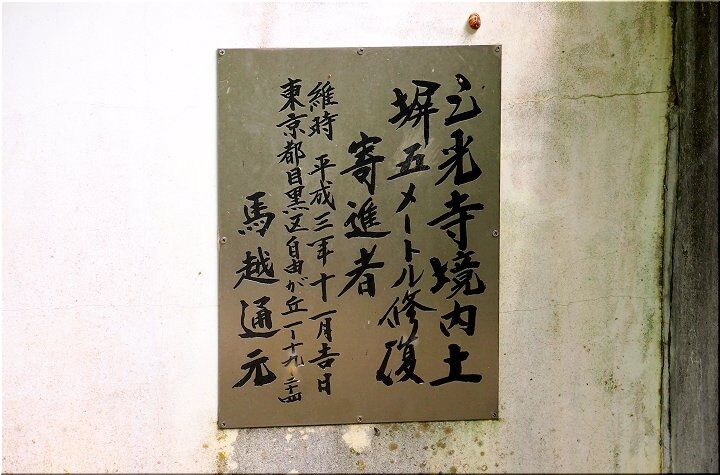 光寺境内土
塀五メートル修復
寄進者
維時 平成三年十一月吉日
東京都目黒区自由が丘一ー十九ー二四
馬越通元